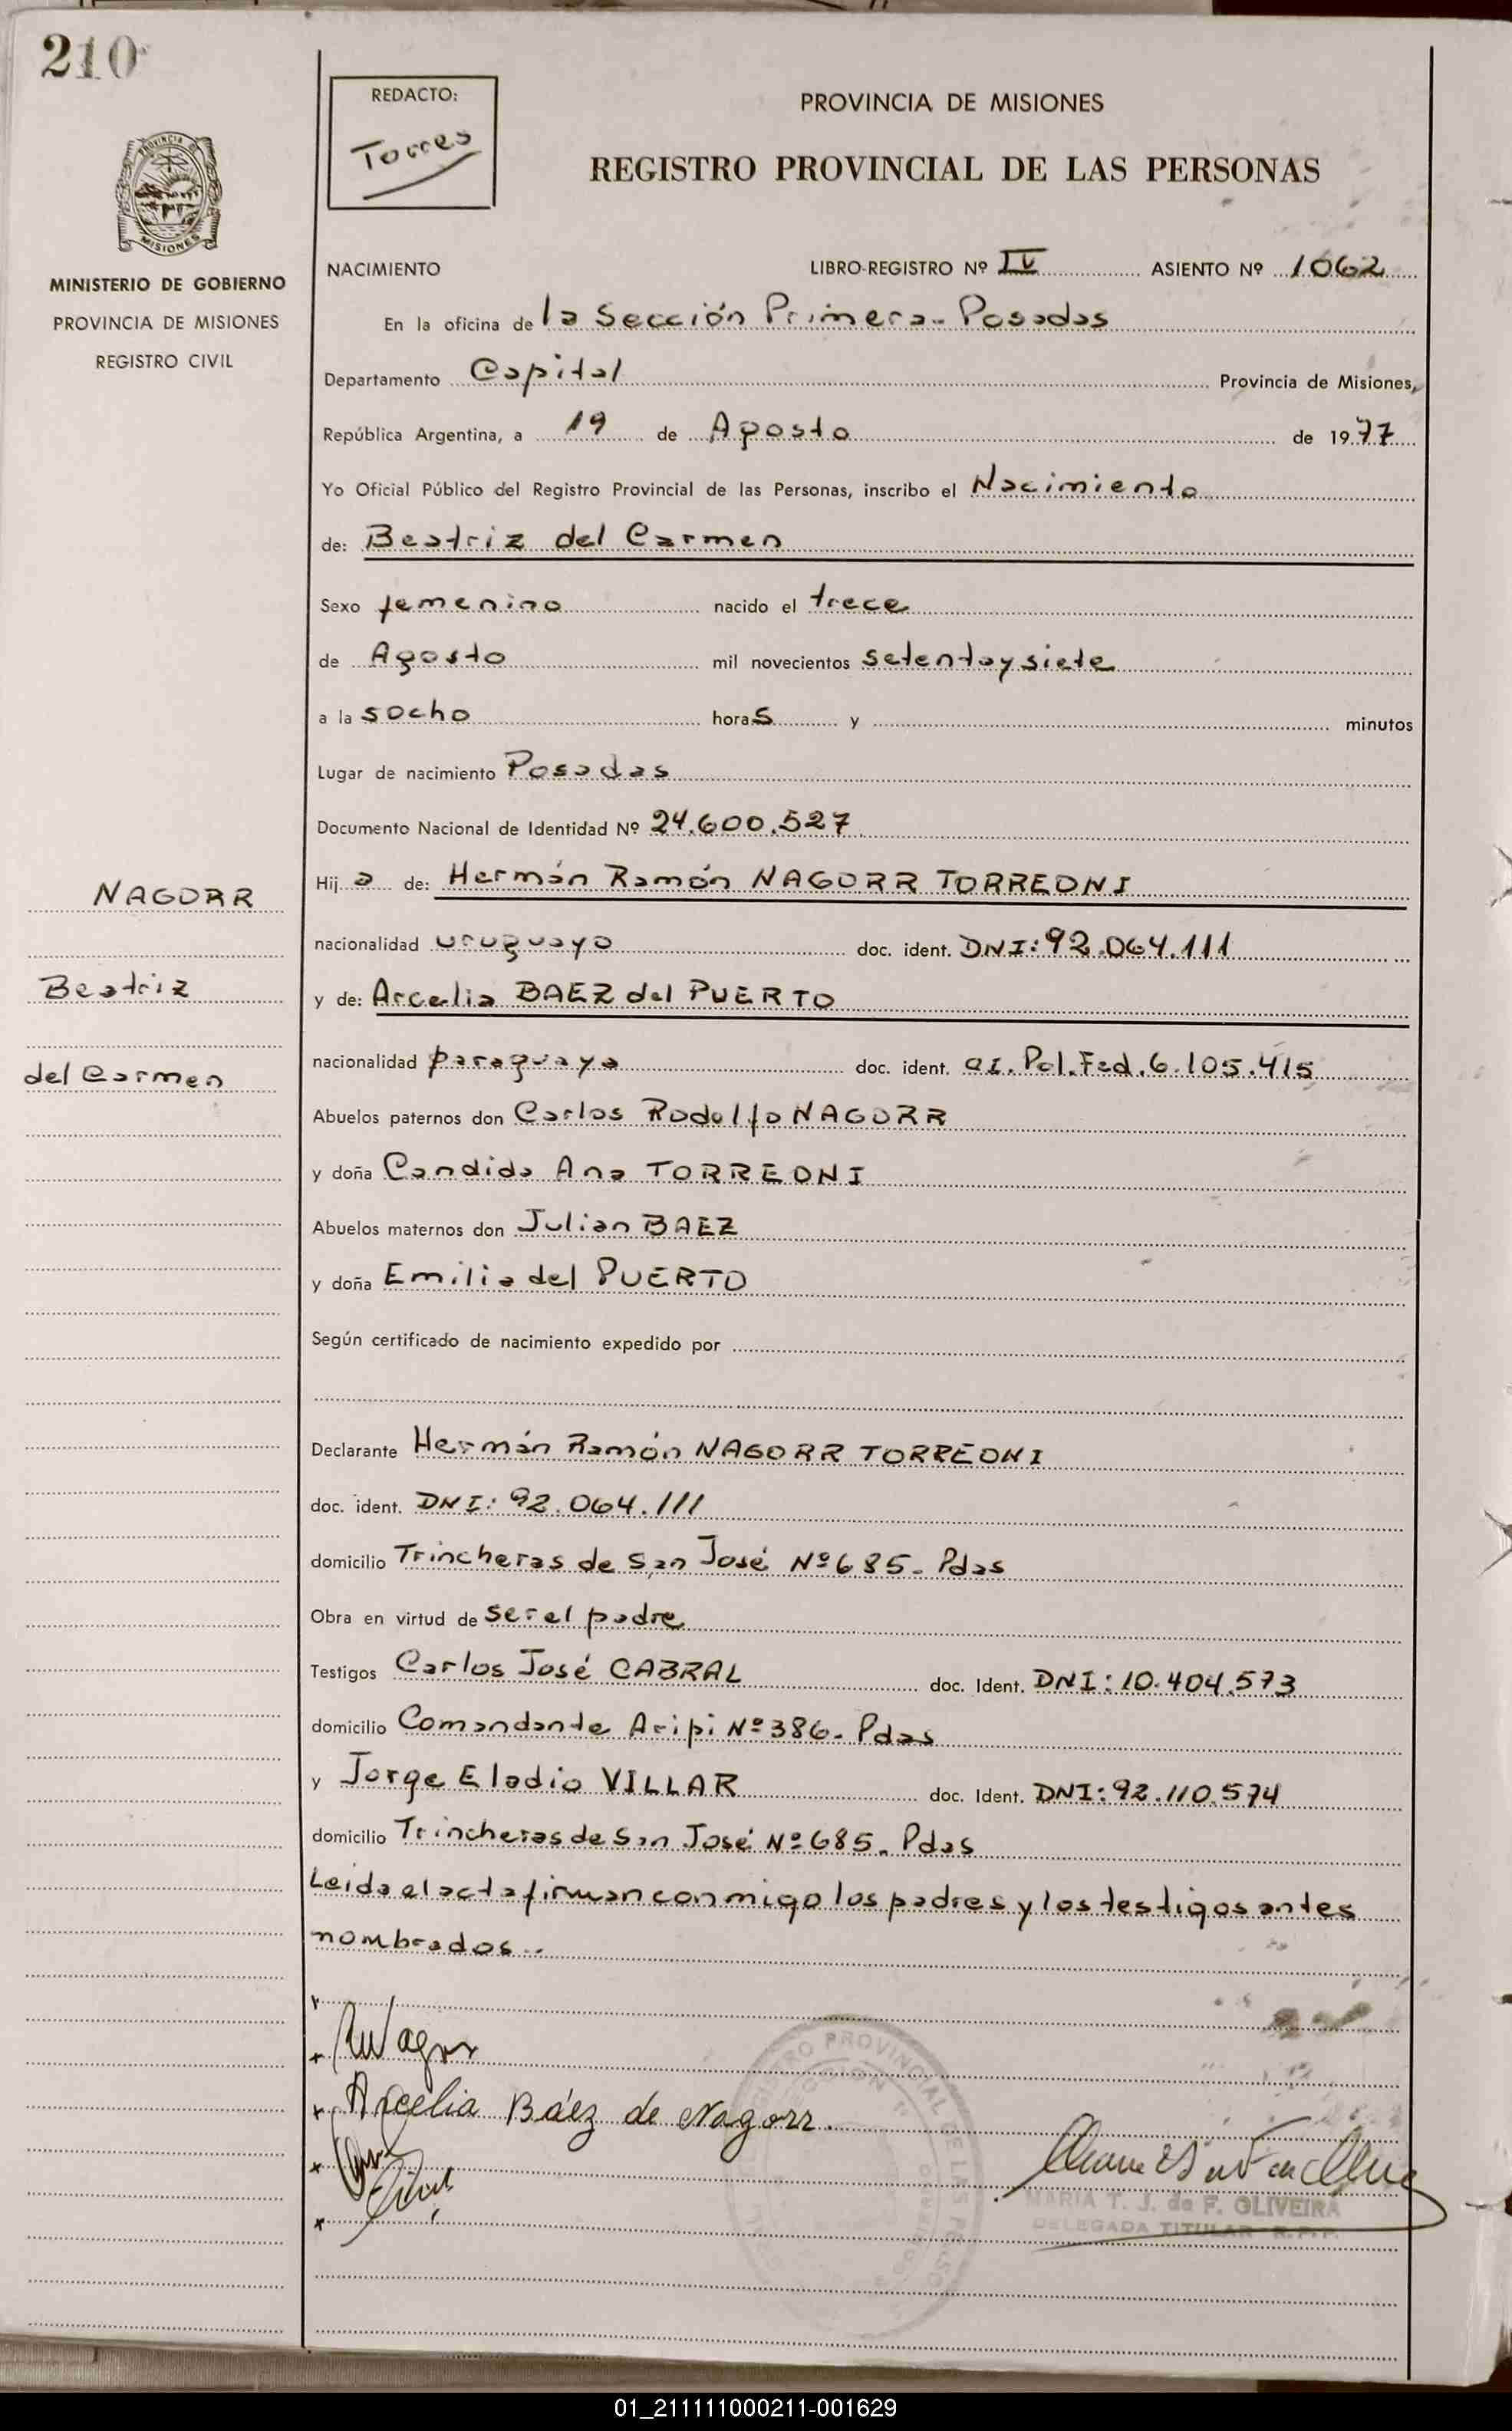 210
REDACTO:
Torres
PROVINCIA DE MISIONES
REGISTRO PROVINCIAL DE LAS PERSONAS
PROVINCIA DE
MISIONES
MINISTERIO DE GOBIERNO
PROVINCIA DE MISIONES
REGISTRO CIVIL
NACIMIENTO LIBRO-REGISTRO Nº IV ASIENTO Nº 1062
En la oficina de la Sección Primera - Posadas
Departamento Capital Provincia de Misiones,
República Argentina, a 19 de Agosto de 1977
Yo Oficial Público del Registro Provincial de las Personas, inscribo el Nacimiento
de: Beatriz del Carmen
Sexo femenino nacido el trece
de Agosto mil novecientos setenta y siete
a la s ocho horas y minutos
Lugar de nacimiento Posadas
Documento Nacional de Identidad Nº 24.600.527
Hija de: Hermán Ramón NAGORR TORREONI
nacionalidad uruguayo doc. ident. DNI: 92.064.111
y de: Arcelia BAEZ del PUERTO
nacionalidad paraguaya doc. ident. CI. Pol. Fed. 6.105.415
Abuelos paternos don Carlos Rodolfo NAGORR
y doña Candida Ana TORREONI
Abuelos maternos don Julian BAEZ
y doña Emilia del PUERTO
Según certificado de nacimiento expedido por
Declarante Hermán Ramón NAGORR TORREONI
doc. ident. DNI: 92.064.111
domicilio Trincheras de San José Nº 685 - Pdas
Obra en virtud de ser el padre
Testigos Carlos José CABRAL doc. Ident. DNI: 10.404.573
domicilio Comandante Aripi Nº 386 - Pdas
y Jorge Eladio VILLAR doc. Ident. DNI: 92.110.574
domicilio Trincheras de San José Nº 685 - Pdas
Leida el acta firman conmigo los padres y los testigos antes
nombrados.-
NAGORR
Beatriz
del Carmen
Arcelia Báez de Nagorr.
REGISTRO PROVINCIAL DE LAS PERSONAS
MARIA T. J. de F. OLIVEIRA
DELEGADA TITULAR R.P.P.
01_211111000211-001629